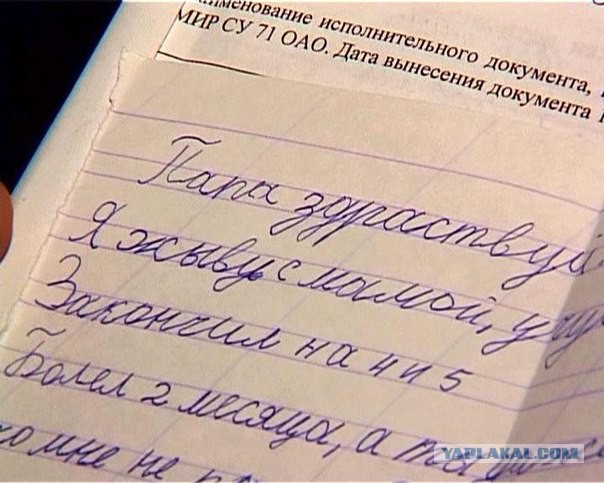 аименование исполнительного документа,
МИР СУ 71 ОАО. Дата вынесения документа
Папа здраствуй
Я жыву с мамой,
Закончил на 4 и 5
Болел 2 месяца, а ты
ко мне не
YAPLAKAL.COM